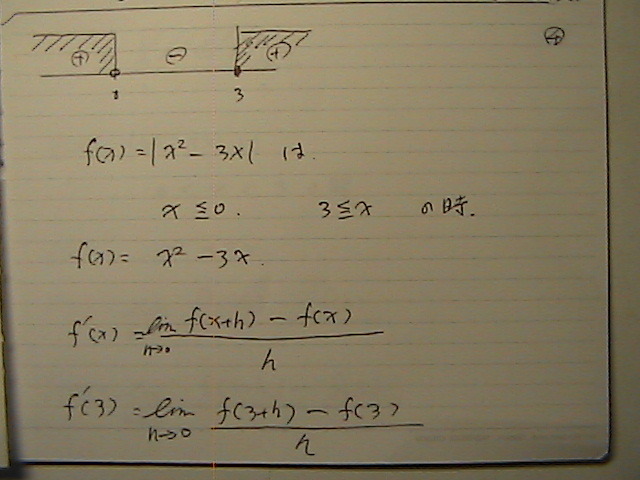 ⊕ ⊖ ⊕ ④
3
f(x) = |x² - 3x| は.
x ≦ 0. 3 ≦ x の時.
f(x) = x² - 3x.
f'(x) = lim h→0 f(x+h) - f(x) / h
f'(3) = lim h→0 f(3+h) - f(3) / h